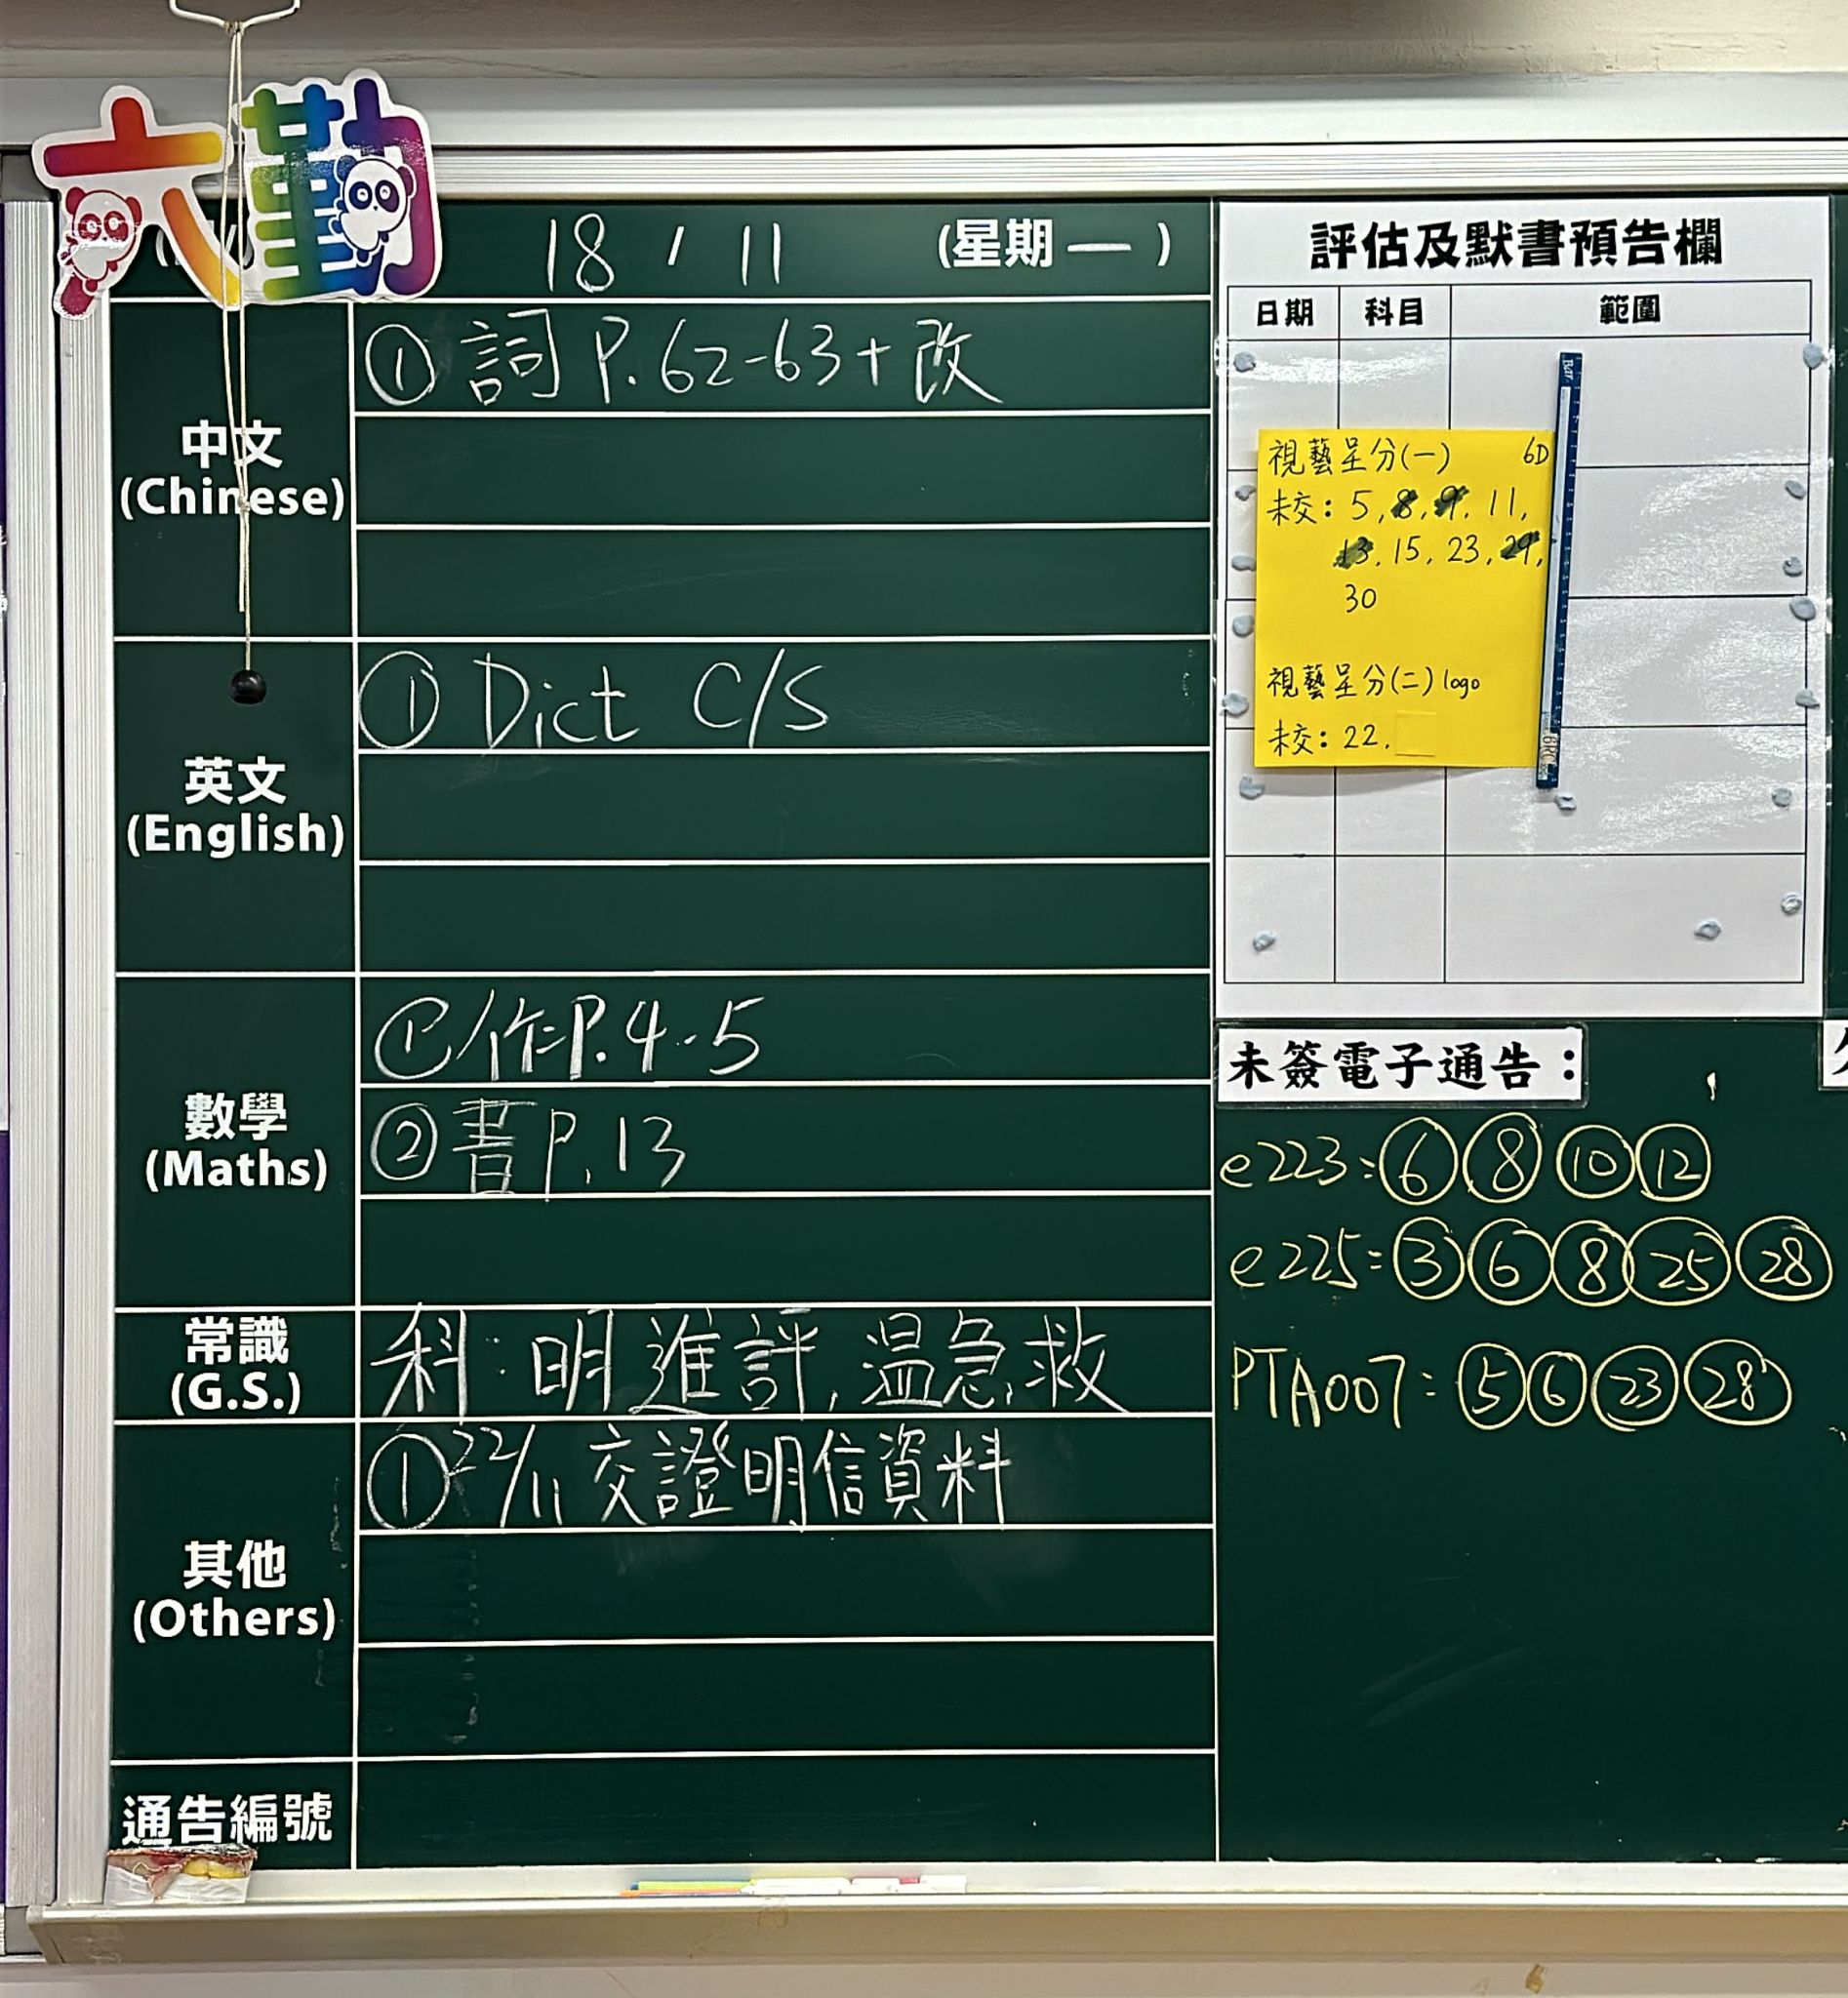 六勤
18 / 11 (星期一)
中文
(Chinese)
① 詞 P.62-63+改
英文
(English)
① Dict C/S
數學
(Maths)
① 作P.4-5
② 書P.13
常識
(G.S.)
科:明進評,温急救
其他
(Others)
① 22/11 交證明信資料
通告編號
評估及默書預告欄
日期 科目 範圍
視藝呈分(一) 6D
未交: 5, 8, 9, 11,
13, 15, 23, 29,
30
視藝呈分(二) logo
未交: 22,
未簽電子通告:
e223: 6 8 10 12
e225: 3 6 8 25 28
PTA007: 5 6 23 28